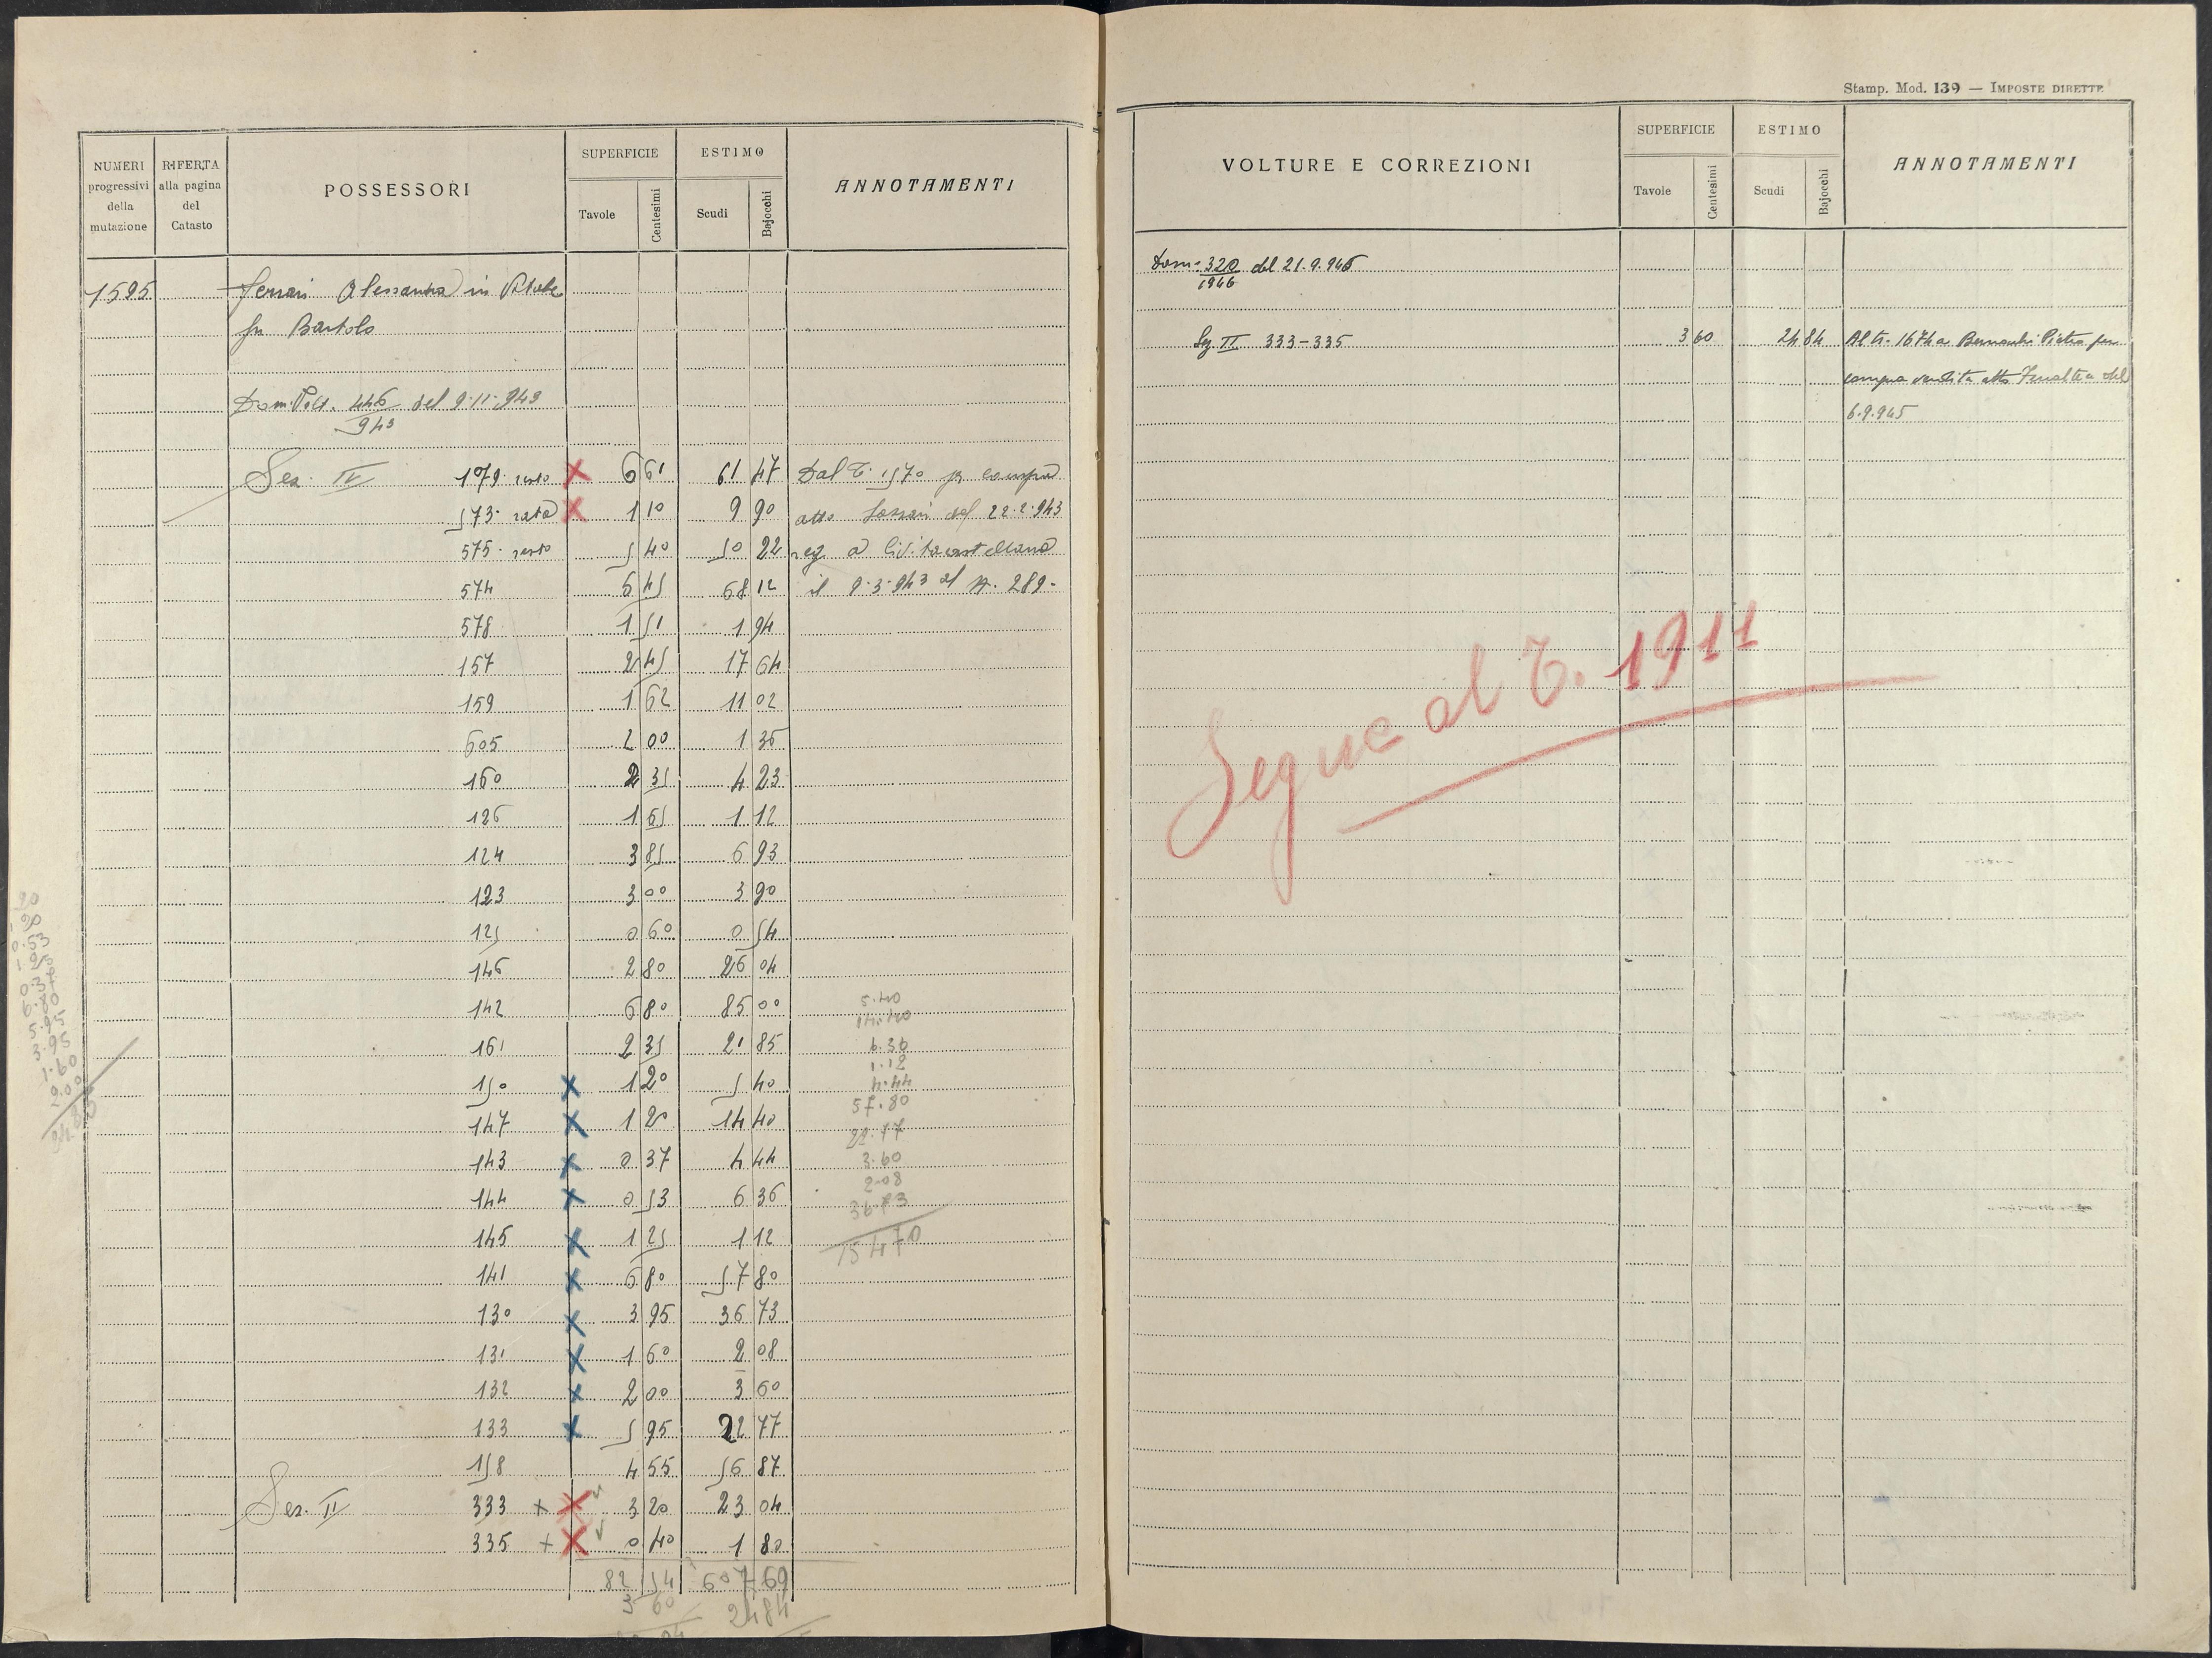 NUMERI progressivi della mutazione
RIFERTA alla pagina del Catasto
POSSESSORI
SUPERFICIE
Tavole
Centesimi
ESTIMO
Scudi
Bajocchi
ANNOTAMENTI
1595 Ferrari Alessandra in
fu Bartolo
Dom. Volt. 446/943 del 9.11.943
Sez. IV 179 resto 6 61 61 47 Dal T. 1570 per compra
573 rata 1 10 9 90 atto del 22.2.943
575 resto 5 40 50 22 reg a Civitacastellana
574 6 45 68 12 il 9.3.943 al N. 289-
578 1 51 1 94
157 2 45 17 64
159 1 62 11 02
605 2 00 1 36
160 2 35 4 23
126 1 65 1 12
124 3 85 6 93
123 3 00 3 90
125 0 60 0 54
146 2 80 26 04
142 6 80 85 00
161 2 35 21 85
150 1 20 5 40
147 1 20 14 40
143 0 37 4 44
144 0 53 6 36
145 1 25 1 12
141 6 80 57 80
130 3 95 36 73
131 1 60 2 08
132 2 00 3 60
133 5 95 22 77
158 4 55 56 87
Sez. II 333 + 3 20 23 04
335 + 0 40 1 80
82 54 607 69
3 60 24 84
5.40
14.40
6.36
1.12
4.44
57.80
22.77
3.60
2.08
36.73
154 70
20
0.53
1.25
0.37
6.80
5.95
3.95
1.60
2.00
Stamp. Mod. 139 — IMPOSTE DIRETTE
VOLTURE E CORREZIONI
SUPERFICIE
Tavole
Centesimi
ESTIMO
Scudi
Bajocchi
ANNOTAMENTI
Dom. 320/1946 del 21.9.946
Sez II 333-335 3 60 24 84 Al T. 1674 a Pietro per
compra vendita atto del
6.9.945
Segue al T. 1911